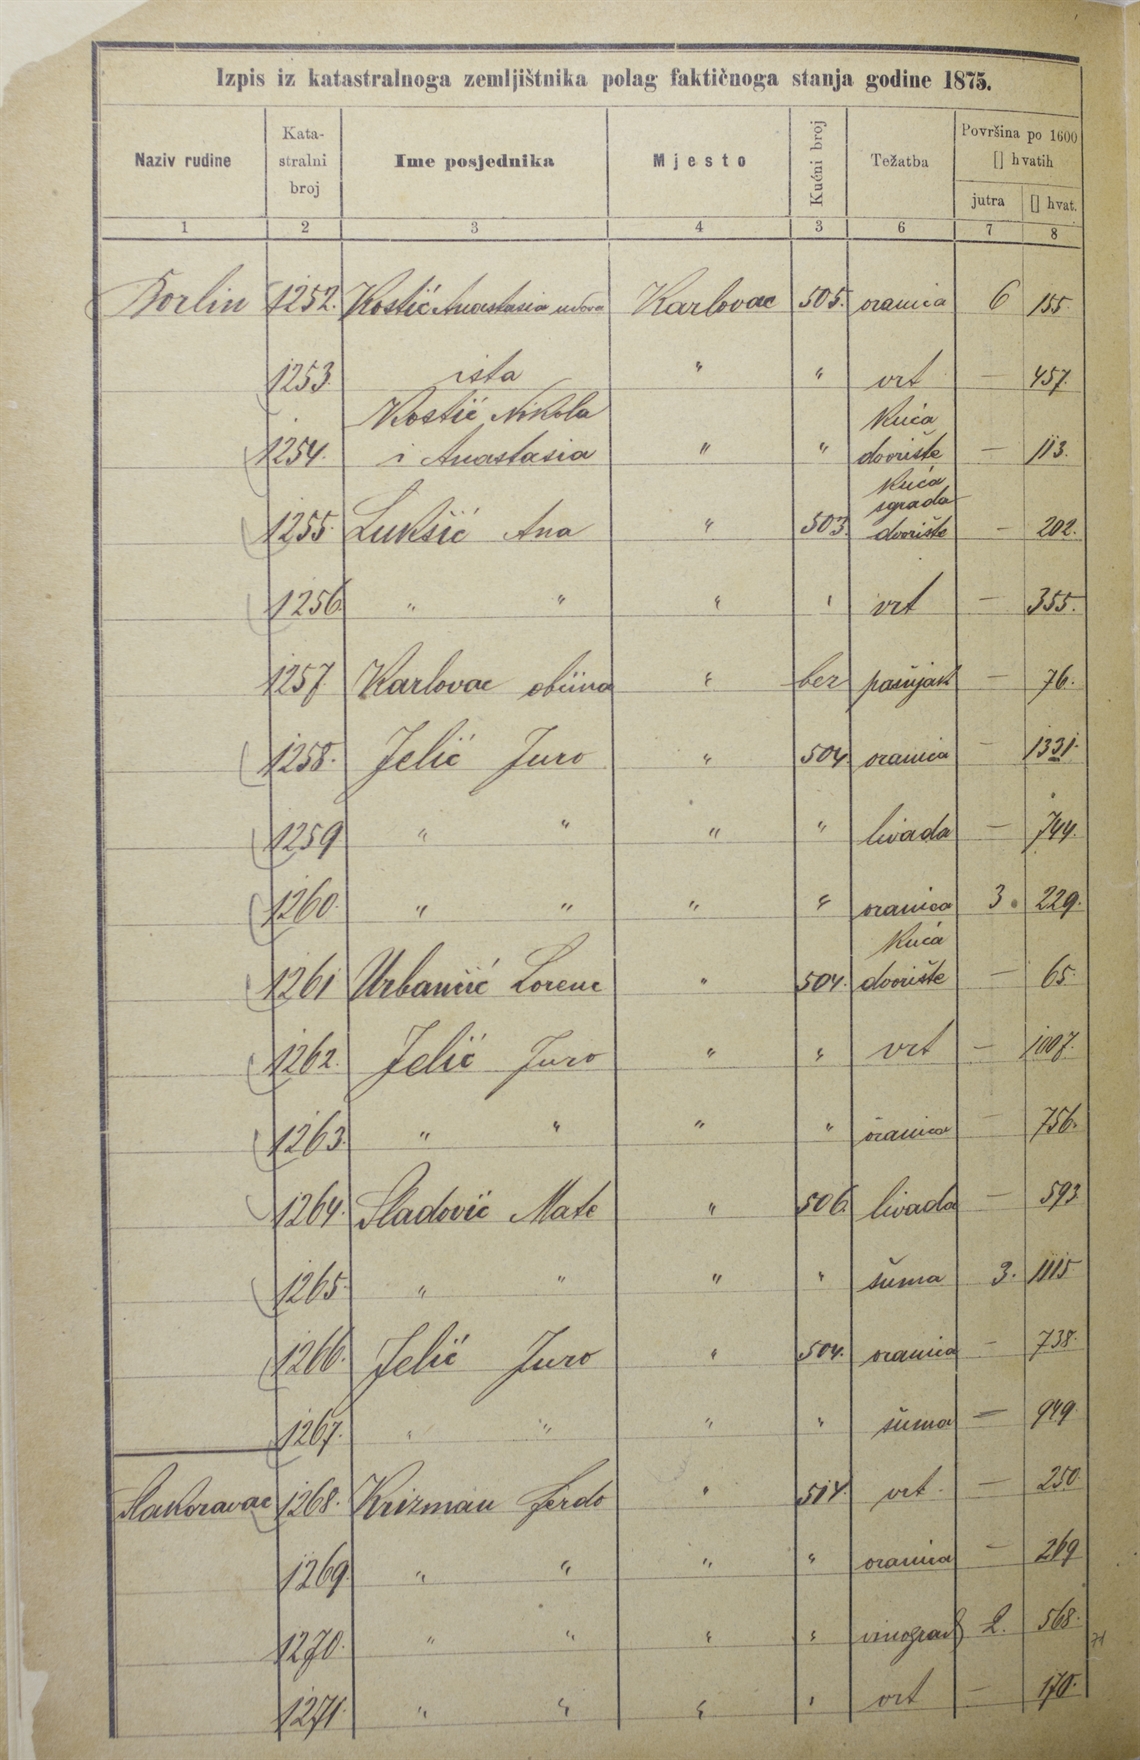 Izpis iz katastralnoga zemljištnika polag faktičnoga stanja godine 1875.
Naziv rudine Kata-stralni broj Ime posjednika Mjesto Kućni broj Težatba Površina po 1600 [] hvatih
jutra [] hvat.
1 2 3 4 3 6 7 8
Borlin 1252. Kostić Anastasia udova Karlovac 505. oranica 6 155.
1253. ista " " vrt — 457.
Kostić Nikola kuća
1254. i Anastasia " " dvorište — 113.
kuća
sgrada
1255. Lukšić Ana " 503. dvorište — 202.
1256. " " " " vrt — 355.
1257. Karlovac obćina " bez pašnjak — 76.
1258. Jelić Juro " 504. oranica — 1331.
1259 " " " " livada — 744.
1260. " " " " oranica 3. 229.
kuća
1261 Urbančić Lorenc " 504. dvorište — 65.
1262. Jelić Juro " " vrt — 1007.
1263. " " " " oranica — 756.
1264. Sladović Mate " 506. livada — 593
1265. " " " " šuma 3. 1115
1266. Jelić Juro " 504. oranica — 738.
1267. " " " " šuma — 949.
1268. Krizman Ferdo " 514. vrt. — 250.
1269. " " " " oranica — 269
1270. " " " " vinograd 2. 568.
71
1271. " " " " vrt — 170.